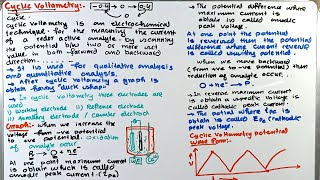 Cyclic Voltammetry:-
Cyclic
cyclic voltammetry is an electrochemical
technique for the measuring the current
of a redox active analyte by scanning
the potential b/w two or more set
value in both forward and backward
direction.
→ It is used for qualitative analysis
and quantitative analysis.
→ After cyclic voltammetry a graph is
obtain having "duck shape"
→ In cyclic voltammetry three electrodes are
used
i) working electrode ii) Reference electrode
iii) Auxiliary electrode / counter electrode
Graph:- when we increase the
voltage from -ve potential
to +ve potential oxidation
of analyte occur.
R → O + ne⁻
At one point maximum current
is obtain which is called
anodic peak current (ipa)
→ The potential difference where
maximum current is
obtain is called anodic
peak voltage.
At one point the potential
is reversed then the potential
difference where current reversed
is called switching potential.
→ when we move backward
(from +ve to -ve potential) then
reduction of analyte occur.
O + ne⁻ → R.
→ In reverse maximum current
is obtain a voltage is called
cathodic peak current.
→ The potential where ipc is
obtain is called Epc (cathodic
peak voltage.
Cyclic Voltammetry potential
Wave Form:-